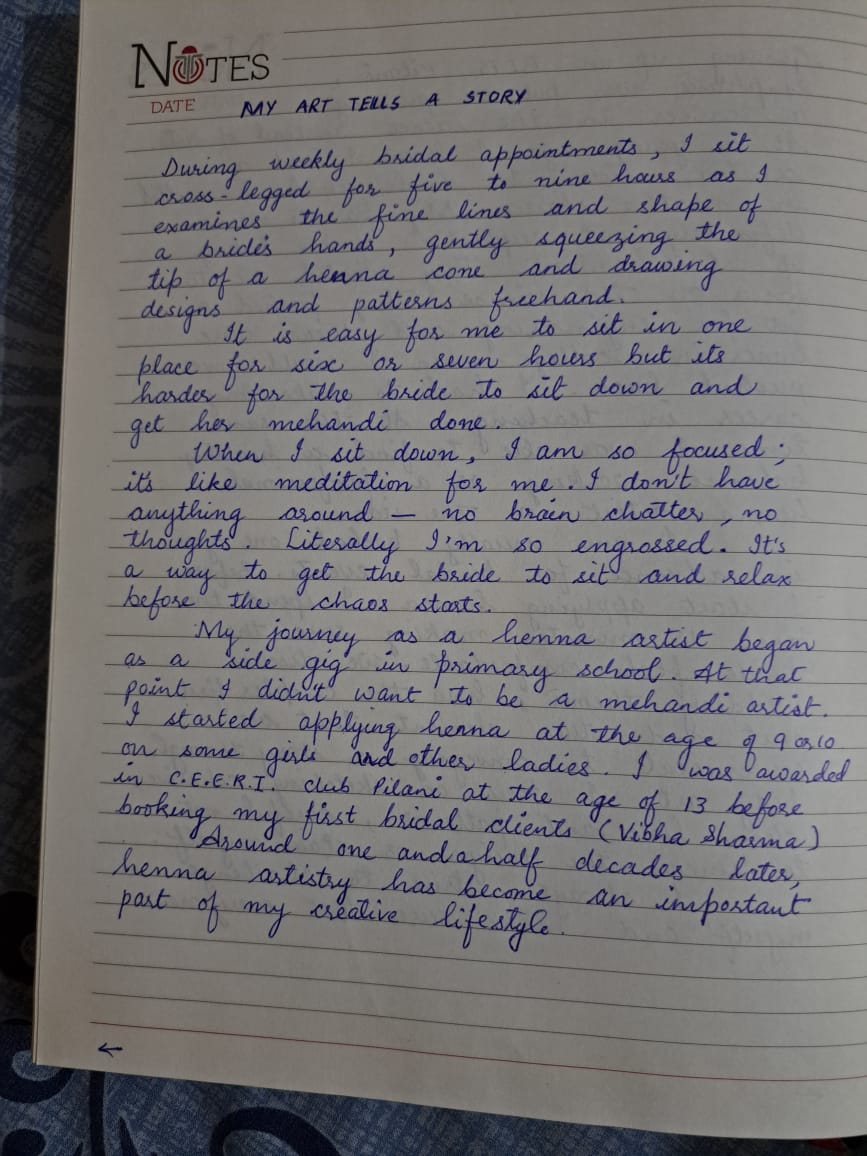 NOTES
DATE MY ART TELLS A STORY
During weekly bridal appointments, I sit
cross-legged for five to nine hours as I
examines the fine lines and shape of
a bride's hands, gently squeezing the
tip of a henna cone and drawing
designs and patterns freehand.
It is easy for me to sit in one
place for six or seven hours but its
harder for the bride to sit down and
get her mehandi done.
When I sit down, I am so focused;
it's like meditation for me. I don't have
anything around — no brain chatter, no
thoughts. Literally I'm so engrossed. It's
a way to get the bride to sit and relax
before the chaos starts.
My journey as a henna artist began
as a side gig in primary school. At that
point I didn't want to be a mehandi artist.
I started applying henna at the age of 9 or 10
on some girls and other ladies. I was awarded
in C.E.E.R.I. club Pilani at the age of 13 before
booking my first bridal clients (Vibha Sharma)
Around one and a half decades later,
henna artistry has become an important
part of my creative lifestyle.
←